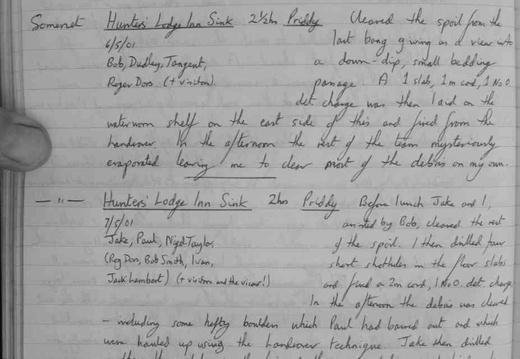 Somerset Hunters' Lodge Inn Sink 2½hrs Priddy Cleared the spoil from the
6/5/01 last bang giving us a view into
Bob, Dudley, Tangent, a down-dip, small bedding
Roger Dors (+ visitors). passage. A 1 slab, 1m cord, 1 No 0.
det. charge was then laid on the
waterworn shelf on the east side of this and fired from the
handover. In the afternoon the rest of the team mysteriously
evaporated leaving me to clear most of the debris on my own.
— " — Hunters' Lodge Inn Sink 2hrs Priddy Before lunch Jake and I,
7/5/01 assisted by Bob, cleared the rest
Jake, Paul, Nigel Taylor, of the spoil. I then drilled four
(Rog Dors, Bob Smith, Ivan, short shotholes in the floor slabs
Jack Lambert) (+ visitors and the vicar!) and fired a 2m cord, 1 No 0. det. charge.
In the afternoon the debris was cleared
- including some hefty boulders which Paul had bound out and which
were hauled up using the handover technique. Jake then drilled